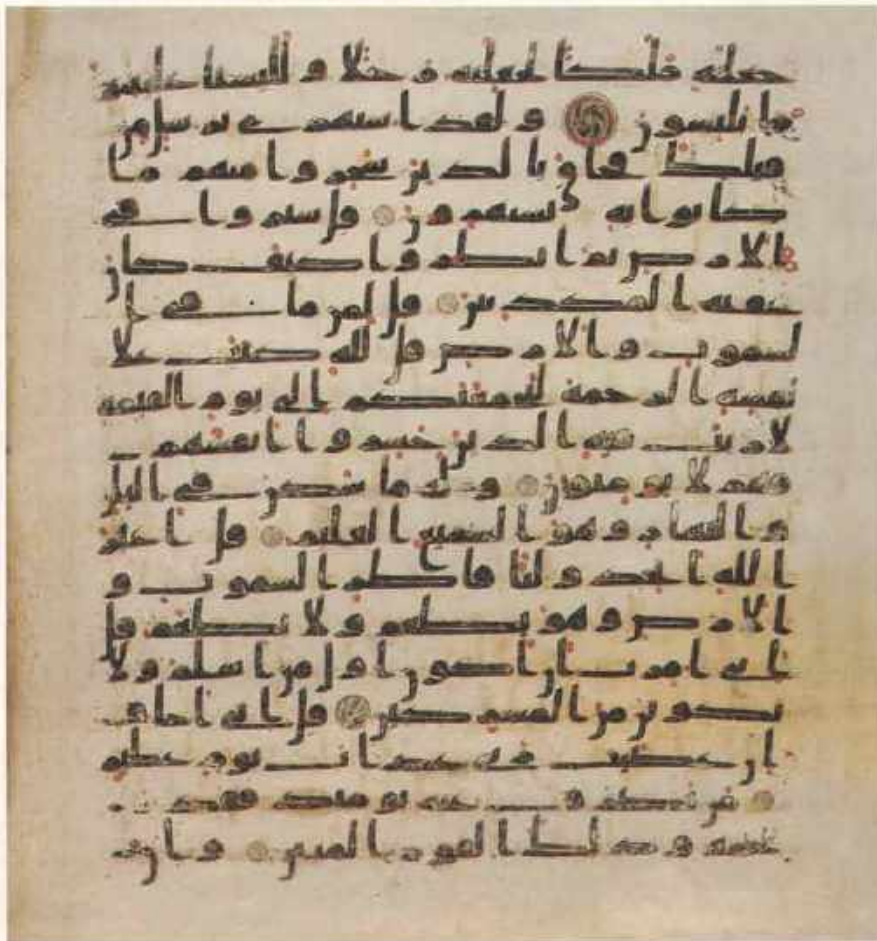 جعلنه ملكا لجعلنه رجلا و للبسنا عليهم
ما يلبسون و لقد استهزى برسل من
قبلك فحاق بالذين سخروا منهم ما
كانوا به يستهزون قل سيروا في
الارض ثم انظروا كيف كان
عقبة المكذبين قل لمن ما في ا
لسموت والارض قل لله كتب علا
نفسه الرحمة ليجمعنكم الى يوم القيمة
لا ريب فيه الذين خسروا انفسهم
فهم لا يومنون وله ما سكن في اليل
والنهار وهو السميع العليم قل اغير
الله اتخذ وليا فاطر السموت و
الارض وهو يطعم ولا يطعم قل
اني امرت ان اكون اول من اسلم ولا
تكونن من المشركين قل اني اخاف
ان عصيت ربي عذاب يوم عظيم
من يصرف عنه يومئذ فقد ر
حمه وذلك الفوز المبين وان